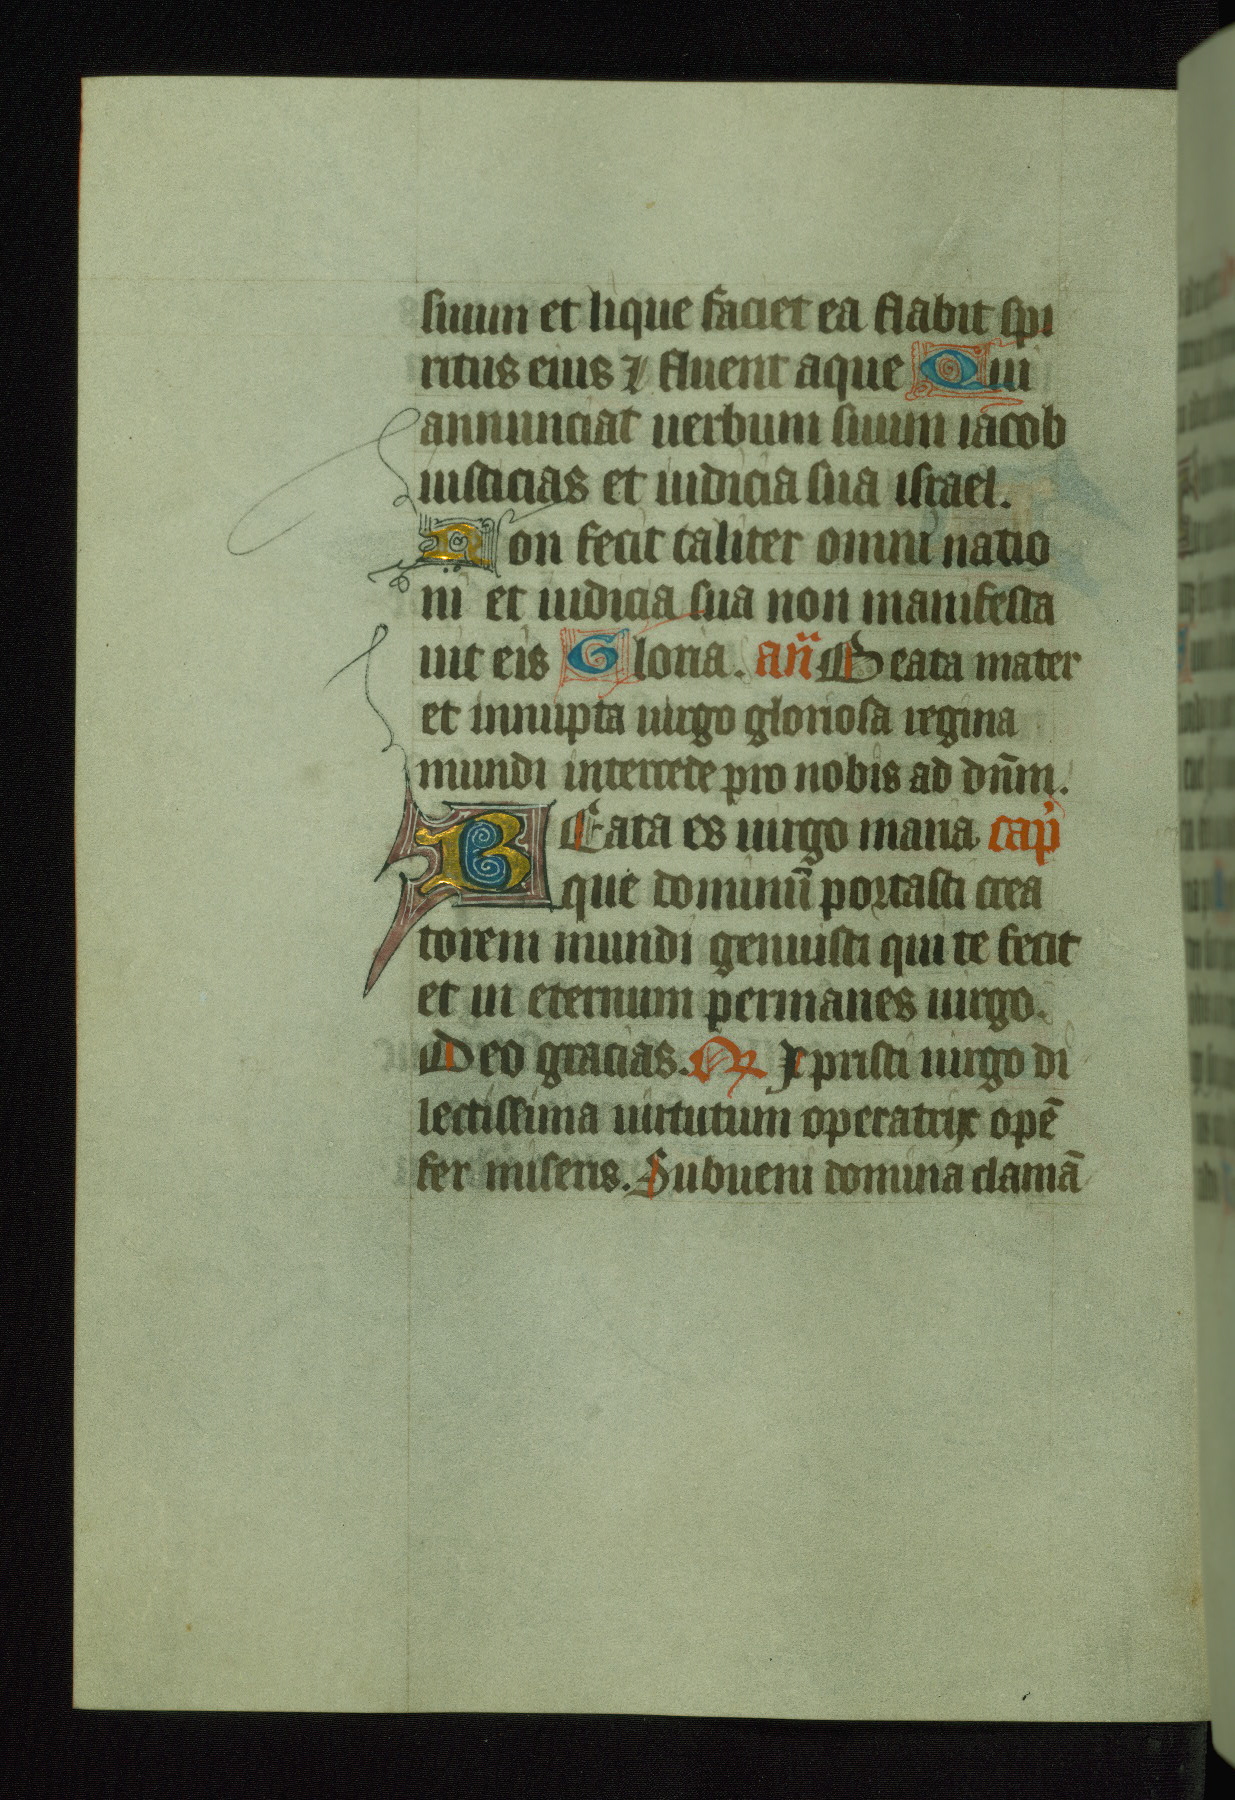 suum et lique faciet ea flabit spi
ritus eius ⁊ fluent aque Qui
annunciat uerbum suum iacob
iusticias et iudicia sua israel.
Non fecit taliter omni natio
ni et iudicia sua non manifesta
uit eis Gloria. añ Beata mater
et innupta uirgo gloriosa regina
mundi intercede pro nobis ad dn̄m.
BEata es uirgo maria cap̄
que dominū portasti crea
torem mundi genuisti qui te fecit
et in eternum permanes uirgo.
Deo gracias. ℞ Xpristi uirgo di
lectissima uirtutum operatrix opē
fer miseris. Subueni domina clamā